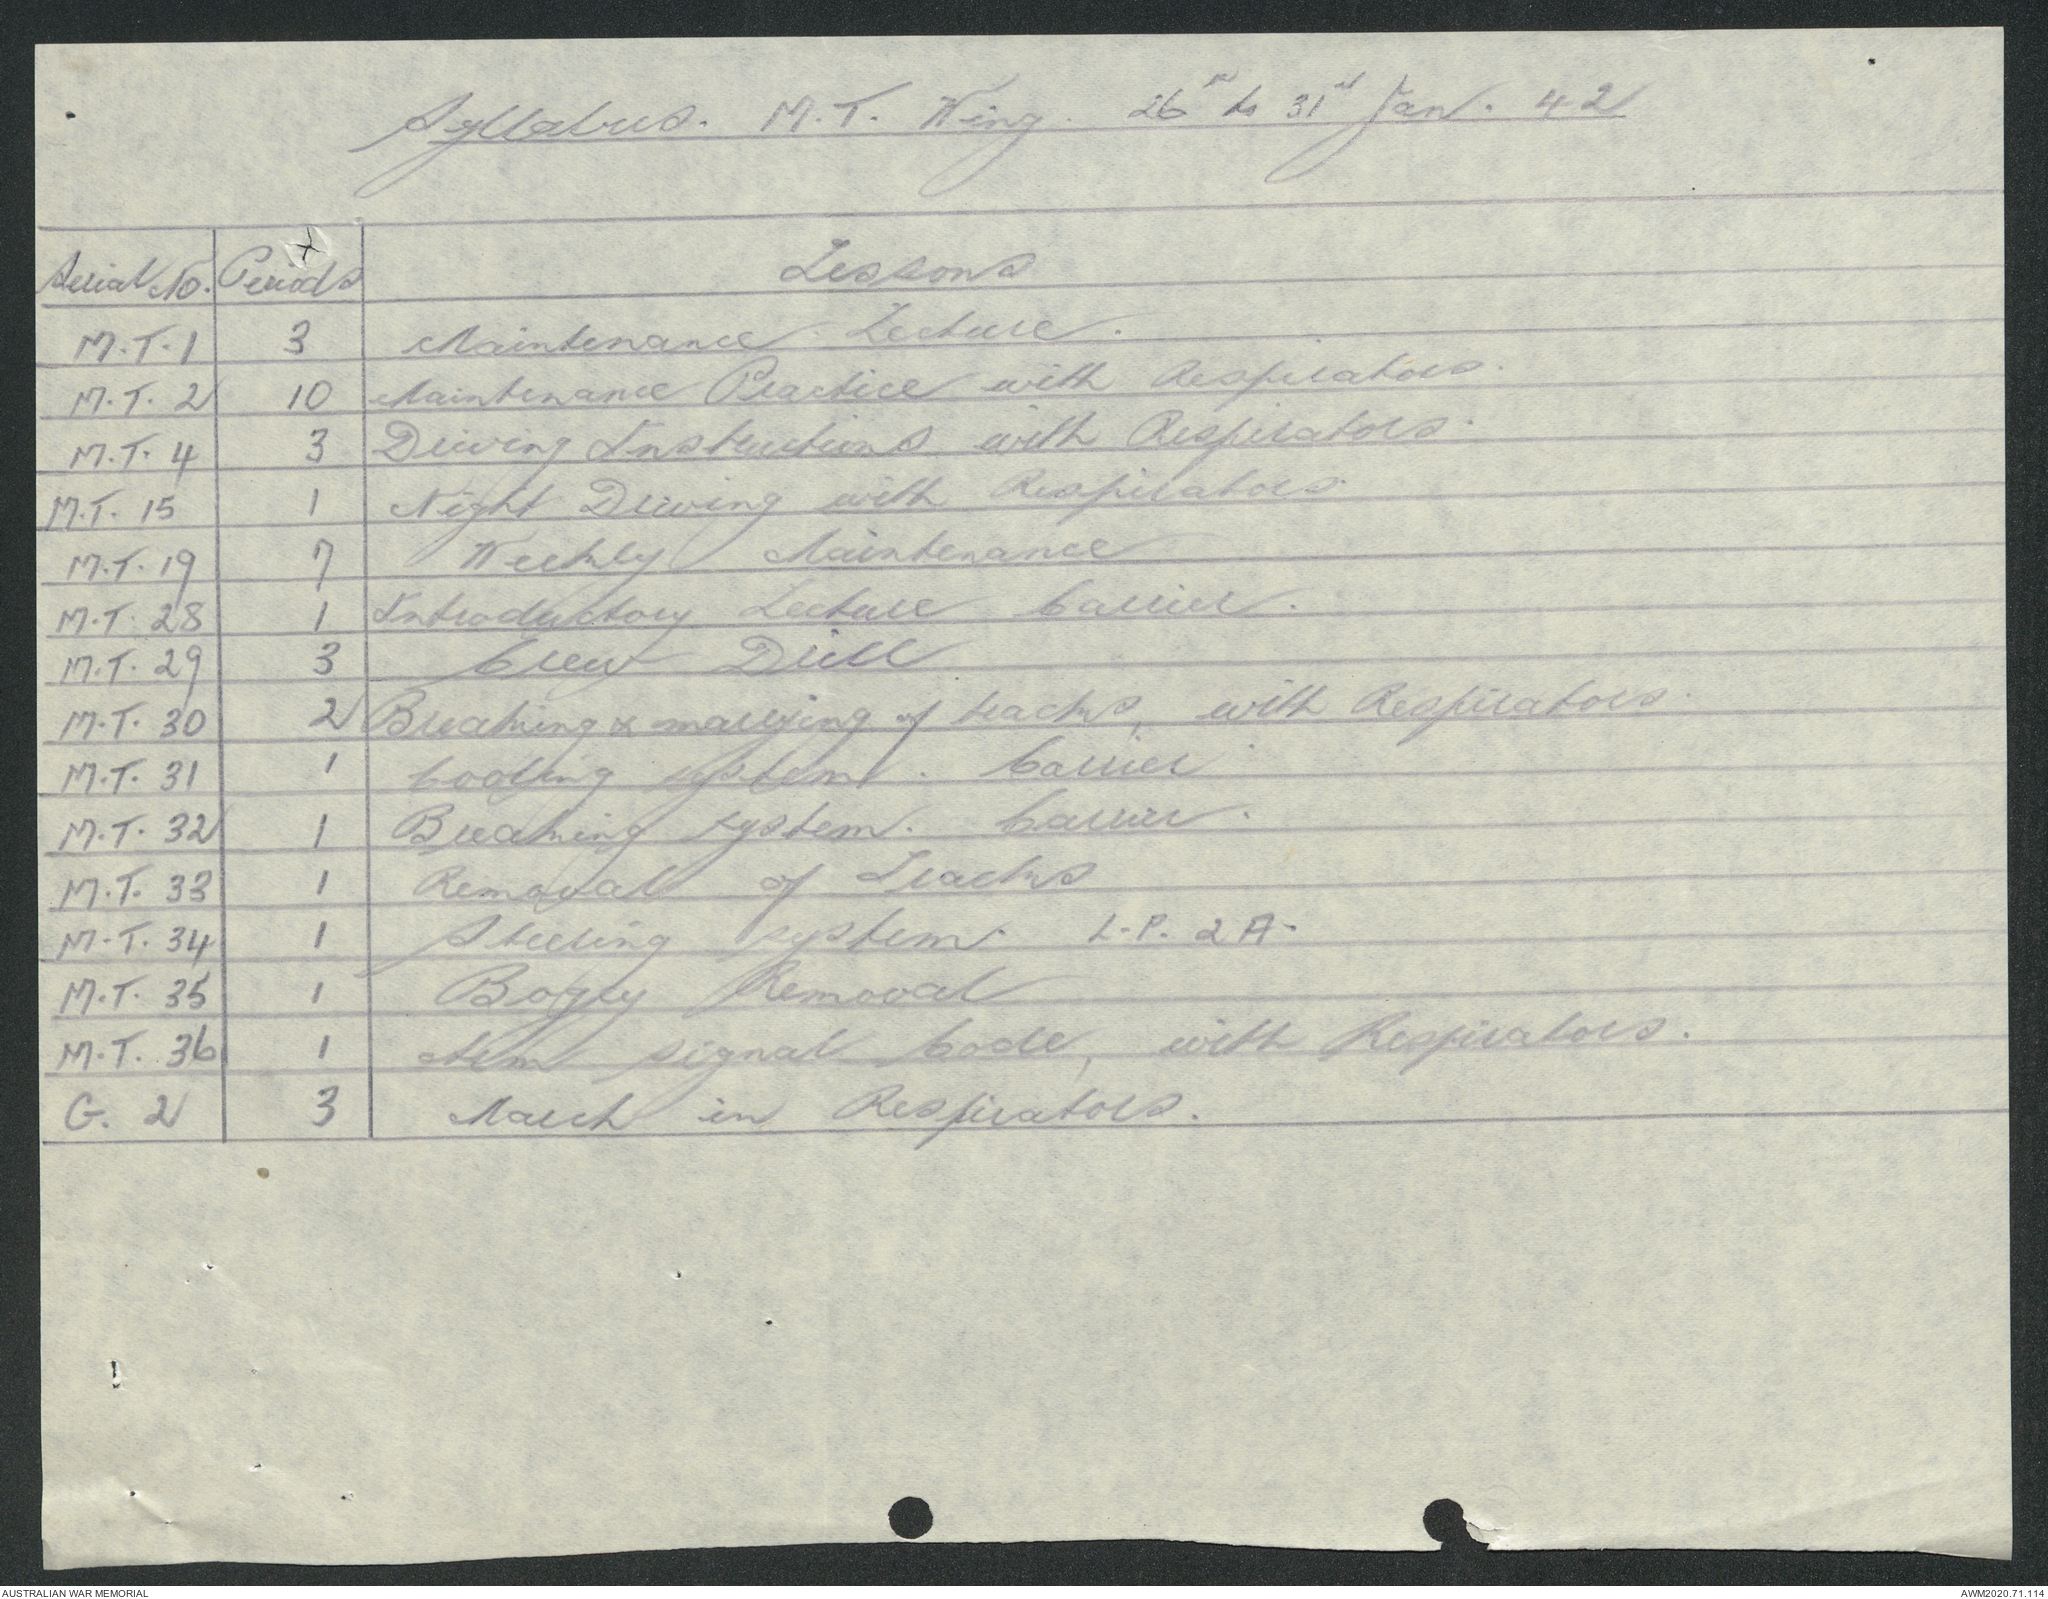 Syllabus. M.T. Wing. 26th to 31st Jan. 42
Serial No. Periods Lessons
M.T. 1 3 Maintenance Lecture.
M.T. 2 10 Maintenance Practice with Respirators.
M.T. 4 3 Driving Instructions with Respirators.
M.T. 15 1 Night Driving with Respirators.
M.T. 19 7 Weekly Maintenance
M.T. 28 1 Introductory Lecture Carrier.
M.T. 29 3 Crew Drill
M.T. 30 2 Breaking & marrying of tracks, with Respirators.
M.T. 31 1 Cooling system. Carrier.
M.T. 32 1 Breaking system. Carrier.
M.T. 33 1 Removal of Tracks
M.T. 34 1 Steering system. L.P. 2A.
M.T. 35 1 Bogey Removal
M.T. 36 1 Arm signal Code, with Respirators.
G. 2 3 March in Respirators.
AUSTRALIAN WAR MEMORIAL AWM2020.71.114